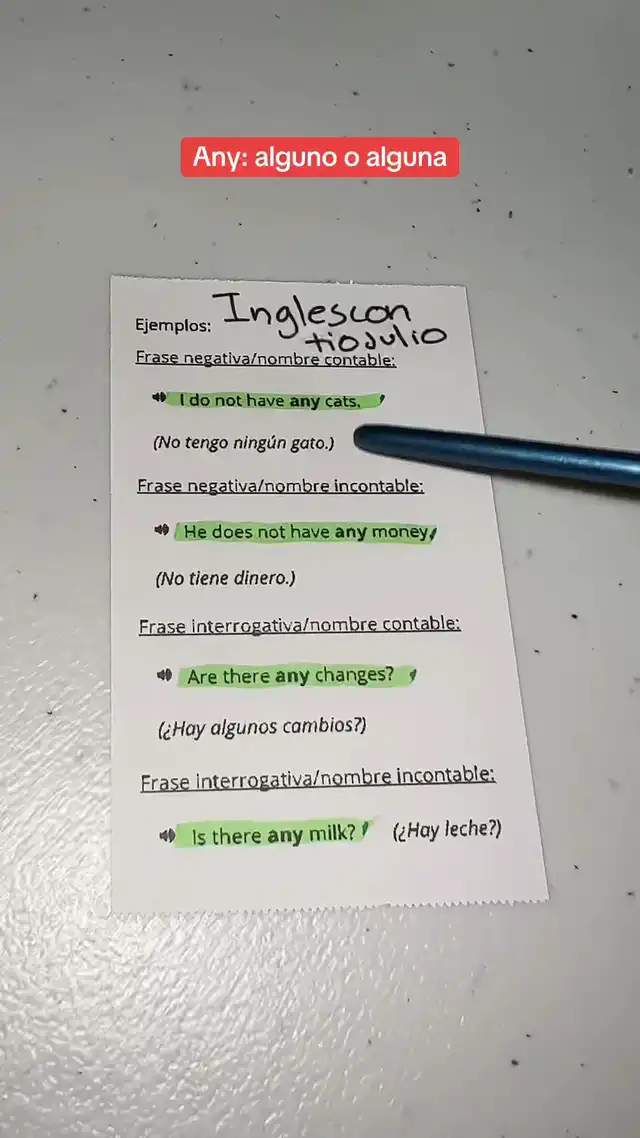 Any: alguno o alguna
Ejemplos: Inglescon
tioJulio
Frase negativa/nombre contable:
I do not have any cats.
(No tengo ningún gato.)
Frase negativa/nombre incontable:
He does not have any money
(No tiene dinero.)
Frase interrogativa/nombre contable:
Are there any changes?
(¿Hay algunos cambios?)
Frase interrogativa/nombre incontable:
Is there any milk? (¿Hay leche?)